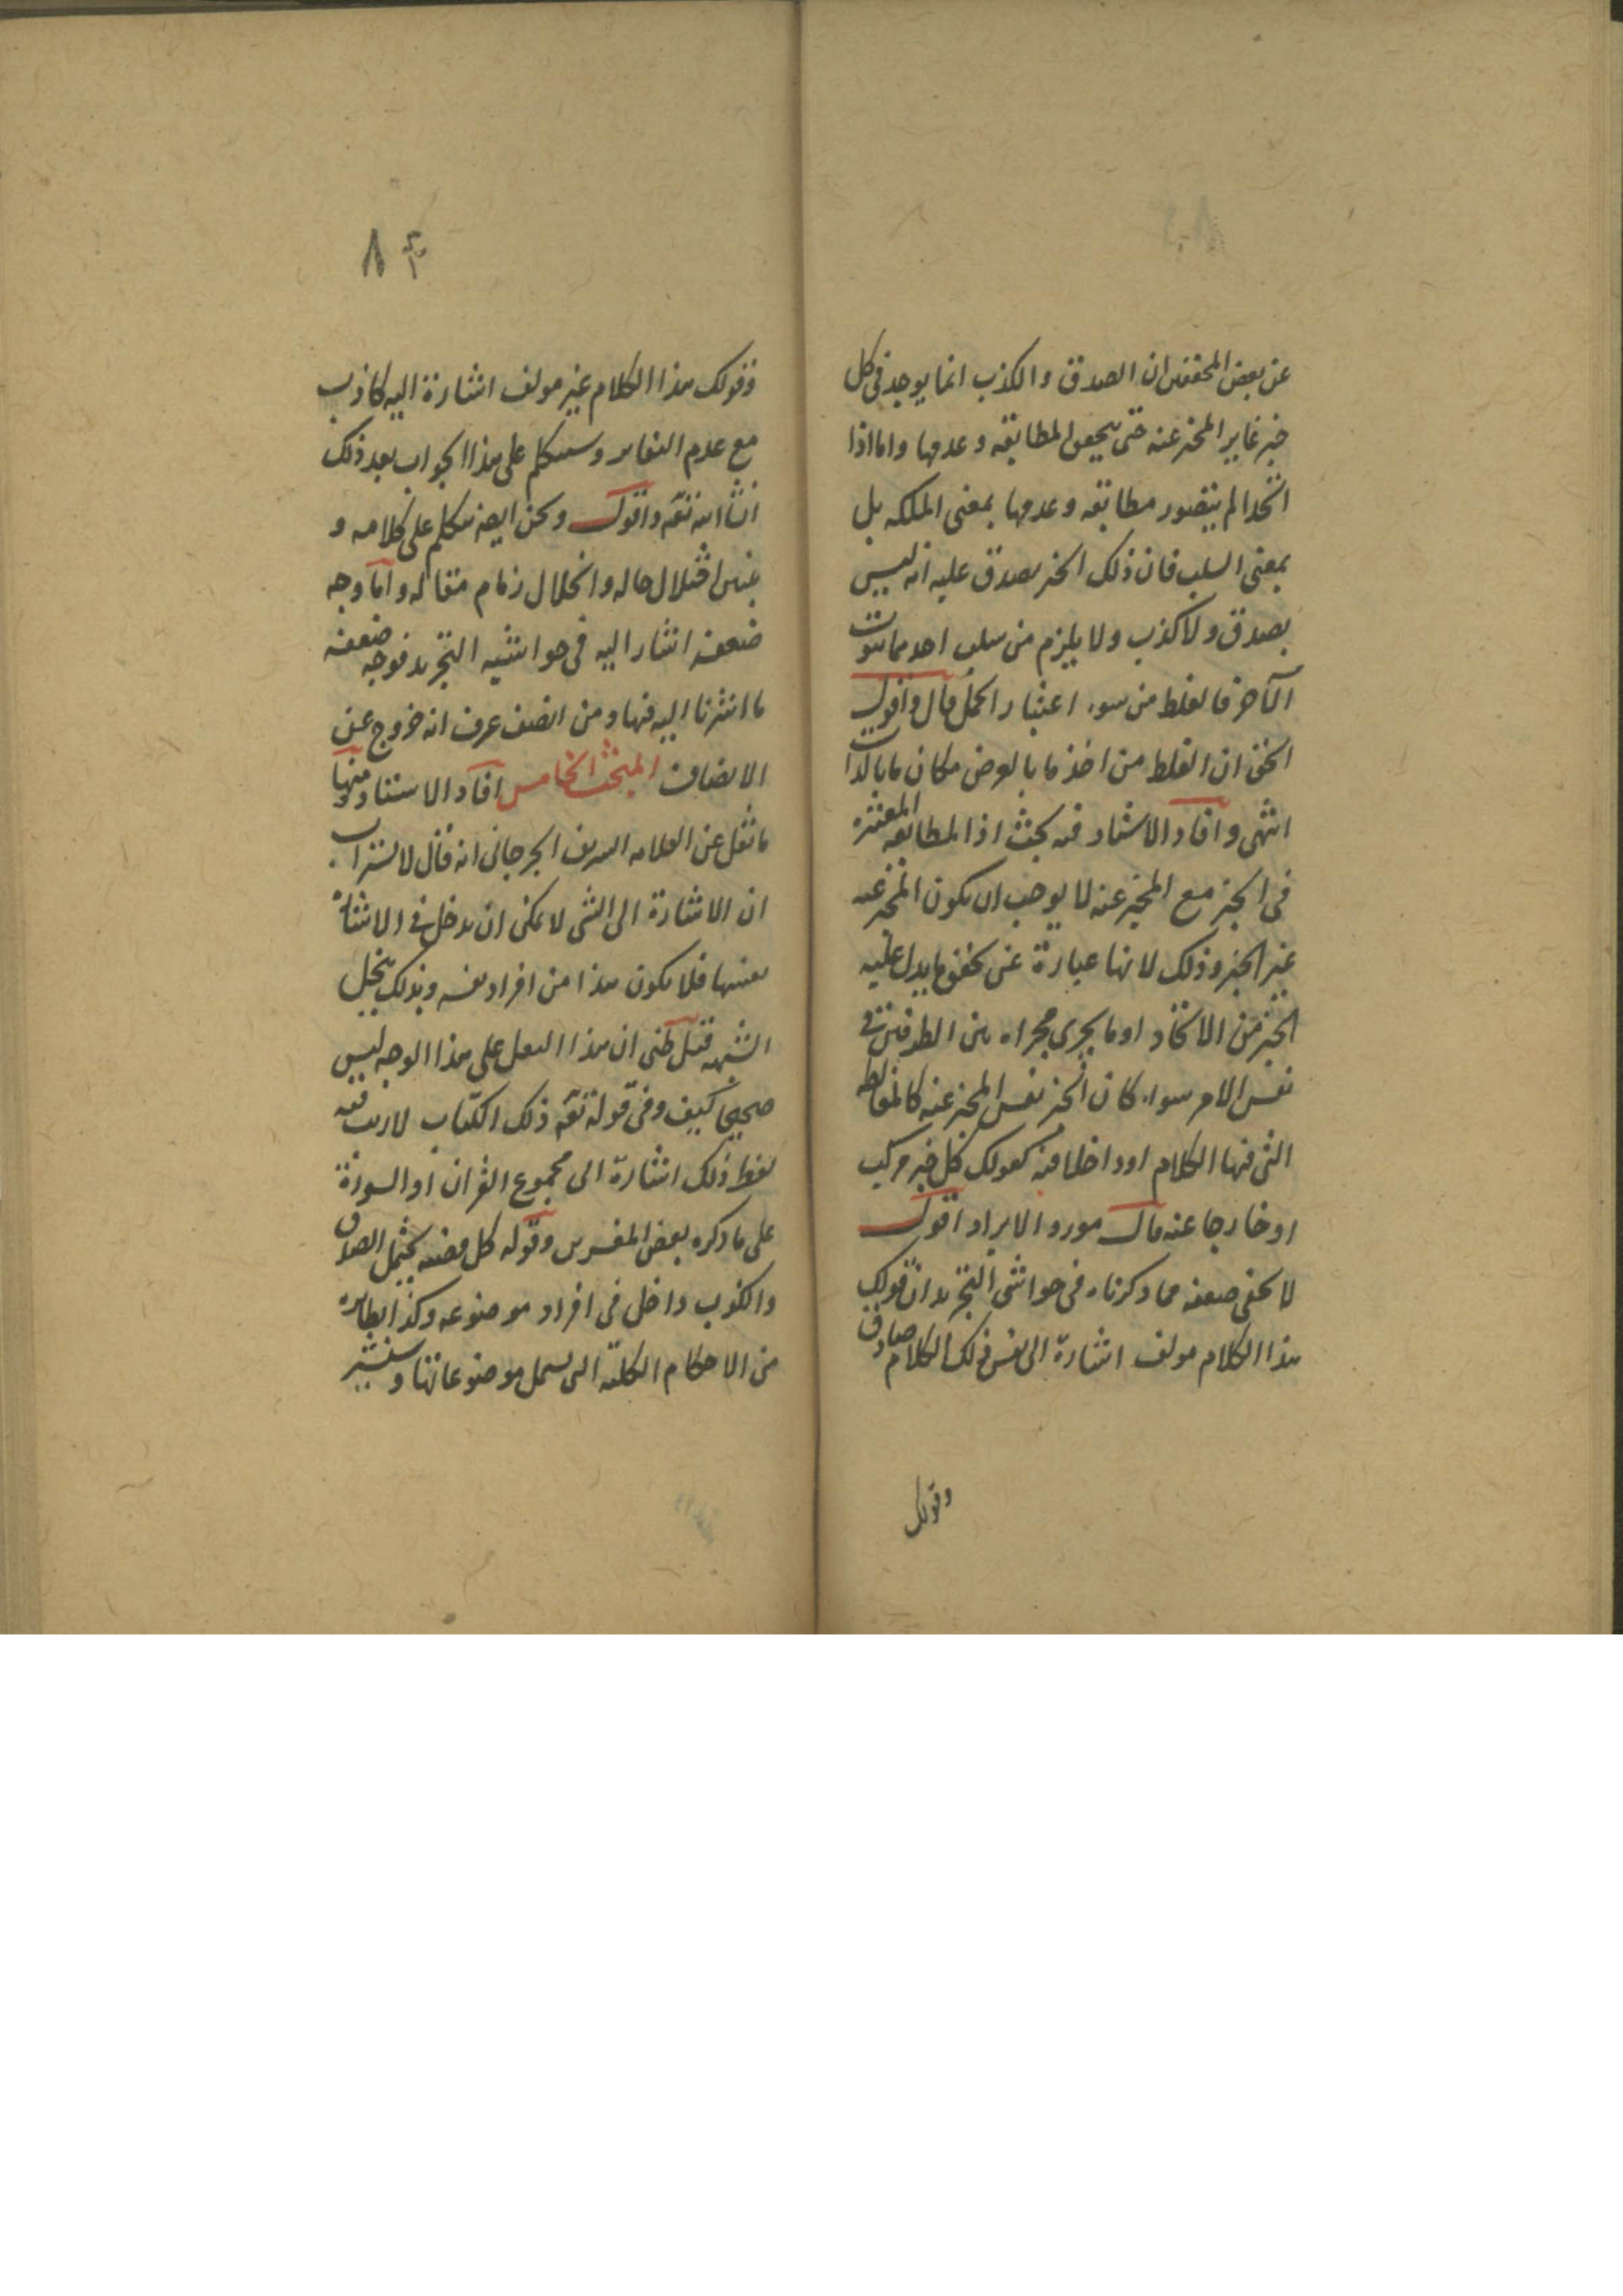 عن بعض المحققين ان الصدق والكذب انما يوجد فى كل
خبر غاير المخبر عنه حتى يتحقق المطابقه وعدمها واما اذا
اتحدا لم يتصور مطابقه وعدمها بمعنى الملكه بل
بمعنى السلب فان ذلك الخبر يصدق عليه انه ليس
بصدق ولا كذب ولا يلزم من سلب احدهما ثبوت
الآخر فالغلط من سوء اعتبار الحمل قال واقول
الحق ان الغلط من اخذ ما بالعرض مكان ما بالذات
انتهى وافاد الاستاد فيه بحث اذ المطابقه المعتبره
فى الخبر مع المخبر عنه لا يوجب ان يكون المخبر عنه
غير الخبر وذلك لانها عبارة عن تحقق ما يدل عليه
الخبر من الاتحاد او ما يجرى مجراه بين الطرفين فى
نفس الامر سواء كان الخبر نفس المخبر عنه كالمغالطه
التى فيها الكلام او داخلا فيه كقولك كل خبر مركب
او خارجا عنه قال مورد الايراد اقول
لا يخفى ضعفه مما ذكرناه فى حواشى التجريد ان قولك
هذا الكلام مولف اشارة الى نفس ذلك الكلام صادق
وقولك
٨٠
وقولك هذا الكلام غير مولف اشارة اليه كاذب
مع عدم التغاير وسنتكلم على هذا الجواب بعد ذلك
ان شا الله تعه واقول ونحن ايضه نتكلم على كلامه و
نبين اختلال حاله وانحلال زمام مقاله واما وجه
ضعفه اشار اليه فى حواشيه التجريد فوجه ضعفه
ما اشرنا اليه فيها ومن انصف عرف انه خروج عن
الانصاف المبحث الخامس افاد الاستاد ومنها
ما نقل عن العلامه الشريف الجرجانى انه قال لا استراب
ان الاشارة الى الشى لا يمكن ان يدخل فى الاشارة
بعينها فلا يكون هذا من افراد نفسه وبذلك ينحل
الشبهه قيل ظنى ان هذا النقل على هذا الوجه ليس
صحيحا كيف وفى قوله تعه ذلك الكتاب لا ريب فيه
لفظ ذلك اشارة الى مجموع القران او السورة
على ما ذكره بعض المفسرين وقوله كل قضيه يحتمل الصدق
والكذب داخل فى افراد موضوعه وكذا نظايره
من الاحكام الكليه التى يشمل موضوعاتها وسنشير